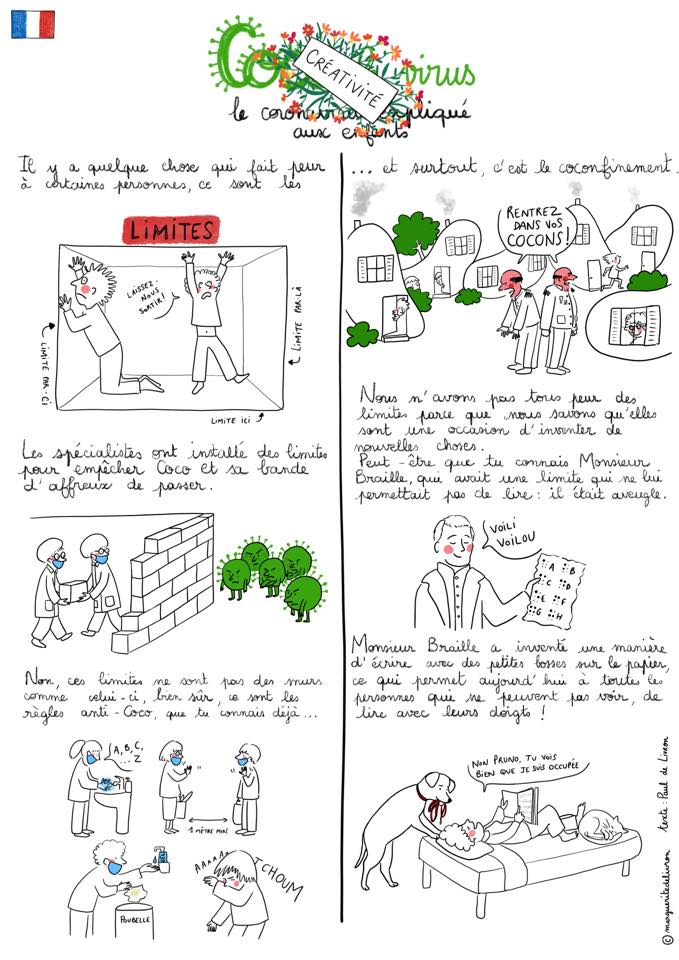 Co
virus
CRÉATIVITÉ
le coronavirus expliqué
aux enfants
Il y a quelque chose qui fait peur
à certaines personnes, ce sont les
LIMITES
LAISSEZ-
NOUS
SORTIR!
LIMITE PAR-CI
LIMITE PAR-LÀ
LIMITE ICI
Les spécialistes ont installé des limites
pour empêcher Coco et sa bande
d'affreux de passer.
Non, ces limites ne sont pas des murs
comme celui-ci, bien sûr, ce sont les
règles anti-Coco, que tu connais déjà...
A, B, C,
... Z
1 MÈTRE MIN.
GEL
POUBELLE
AAAAAA
TCHOUM
... et surtout, c'est le coconfinement.
RENTREZ
DANS VOS
COCONS!
Nous n'avons pas tous peur des
limites parce que nous savons qu'elles
sont une occasion d'inventer de
nouvelles choses.
Peut-être que tu connais Monsieur
Braille, qui avait une limite qui ne lui
permettait pas de lire : il était aveugle.
VOILI
VOILOU
A B
C D
E F
G H
Monsieur Braille a inventé une manière
d'écrire avec des petites bosses sur le papier,
ce qui permet aujourd'hui à toutes les
personnes qui ne peuvent pas voir, de
lire avec leurs doigts !
NON PRUNO, TU VOIS
BIEN QUE JE SUIS OCCUPÉE
© margueritedelivron texte : Paul de Livron